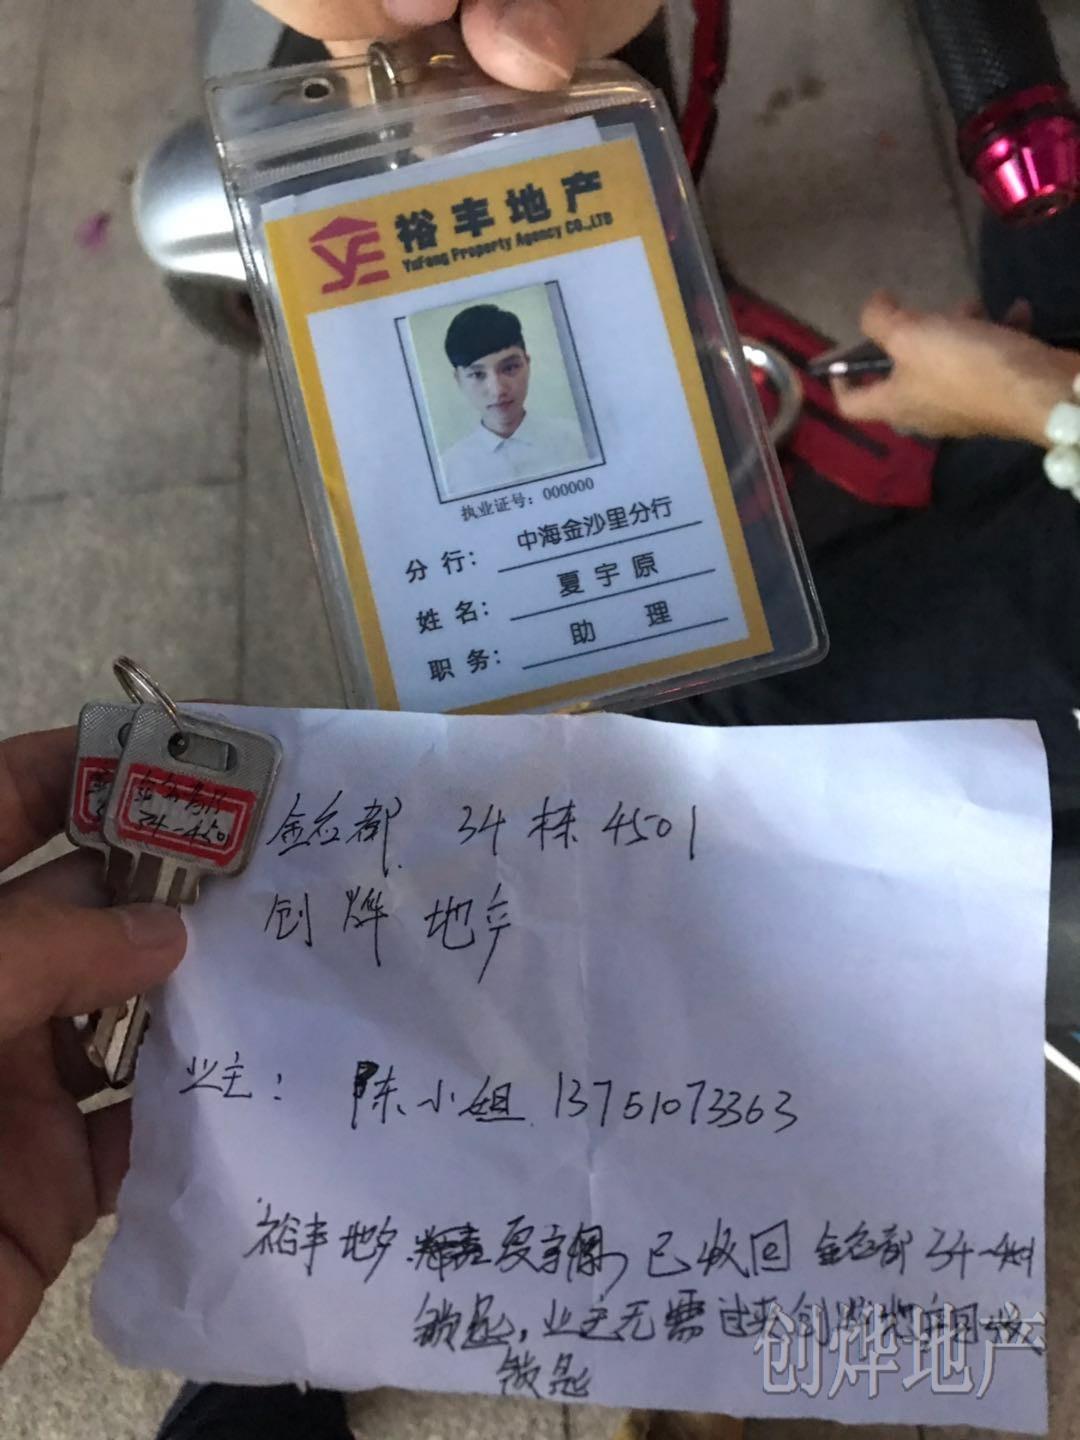 裕丰地产
YuFong Property Agency CO.,LTD
执业证号：000000
分行：中海金沙里分行
姓名：夏宇原
职务：助理
34-4501
金名都 34栋 4501
创烨地产
业主：陈小姐 13751073363
裕丰地产 夏宇原 已收回 金名都 34-4501
锁匙，业主无需过来创烨地产回收
锁匙
创烨地产